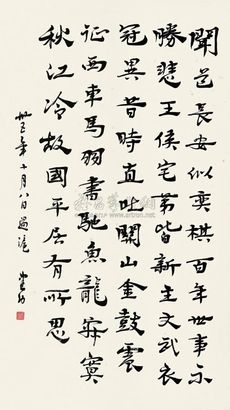 聞道長安似奕棋百年世事不
勝悲王侯宅第皆新主文武衣
冠異昔時直北關山金鼓震
征西車馬羽書馳魚龍寂寞
秋江冷故國平居有所思
卅五年十月八日過滬